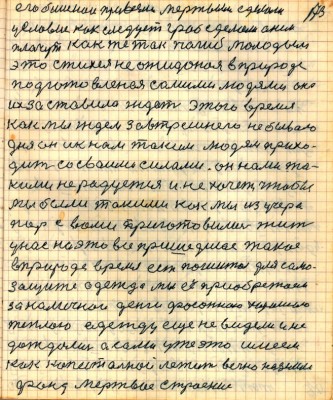 173
его обшенои привели мертвым сделали
условие как следует гроб сделали а ним
плачут как же так погиб молодым
это стихея не ожиданая в природе
подготовленая самими людями око
их заставила ждат этого время
как мы ждем завтрешнего небывало
дня он ик нам таким людям прихо-
дит со своими силами. он нами та-
кими не радуется и не хочет чтобы
мы были такими как мы из утера
пар с вами приготовили жит
у нас на это все пришедшее такое
в природе время ест пошитая для само-
защите одежда мы её приобретаем
за наличной денги фасонною хорошую
теплою одежду еще не видели и не
дождалис а сами уже это имеем
как капиталной летит вечно на земли
фонд мертвое строение